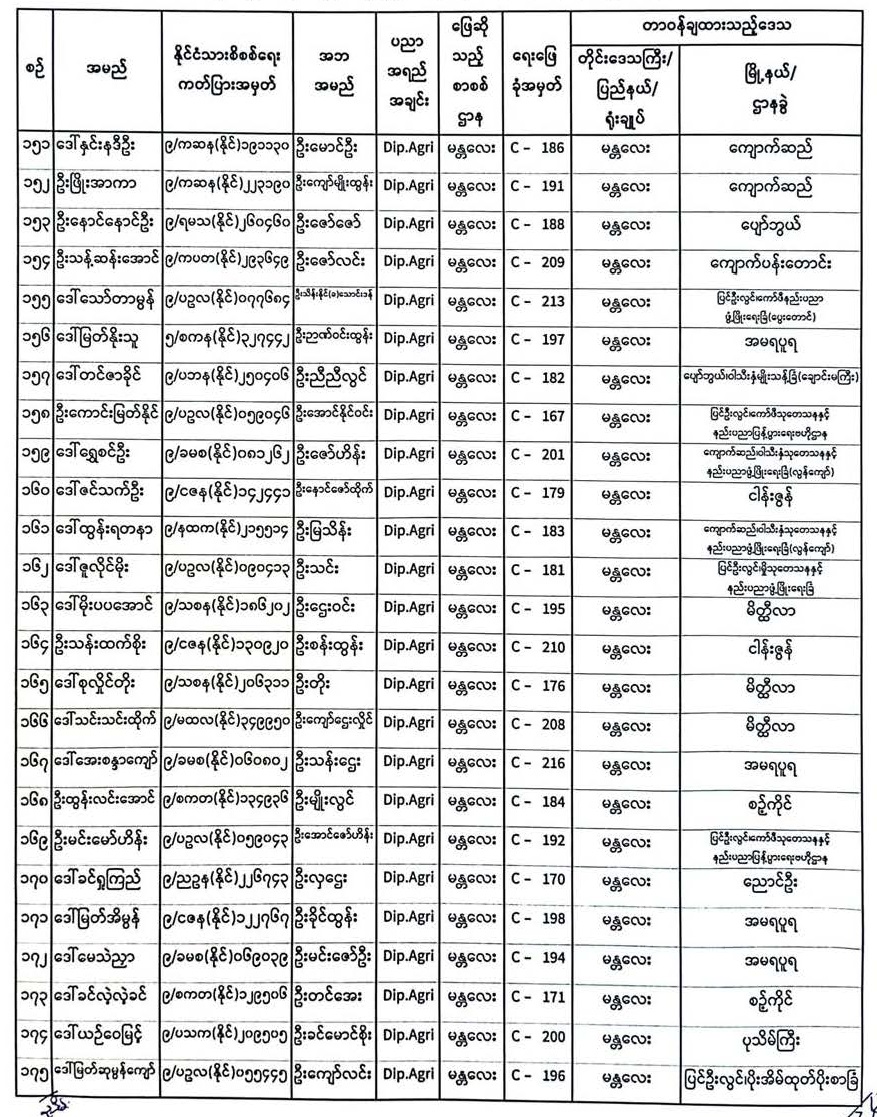 စဉ် အမည် နိုင်ငံသားစိစစ်ရေး ကတ်ပြားအမှတ် အဘ အမည် ပညာ အရည် အချင်း ဖြေဆို သည့် စာစစ် ဌာန ရေးဖြေ ခုံအမှတ် တာဝန်ချထားသည့်ဒေသ
တိုင်းဒေသကြီး/ ပြည်နယ်/ ရုံးချုပ် မြို့နယ်/ ဌာနခွဲ
၁၅၁ ဒေါ်နှင်းနဒီဦး ၉/ကဆန(နိုင်)၁၉၁၁၃၀ ဦးမောင်ဦး Dip.Agri မန္တလေး C - 186 မန္တလေး ကျောက်ဆည်
၁၅၂ ဦးဖြိုးအာကာ ၉/ကဆန(နိုင်)၂၂၃၁၉၀ ဦးကျော်မျိုးထွန်း Dip.Agri မန္တလေး C - 191 မန္တလေး ကျောက်ဆည်
၁၅၃ ဦးနောင်နောင်ဦး ၉/ရမသ(နိုင်)၂၆၀၄၆၀ ဦးဇော်ဇော် Dip.Agri မန္တလေး C - 188 မန္တလေး ပျော်ဘွယ်
၁၅၄ ဦးသန့်ဆန်းအောင် ၉/ကပတ(နိုင်)၂၉၃၆၄၉ ဦးဇော်လင်း Dip.Agri မန္တလေး C - 209 မန္တလေး ကျောက်ပန်းတောင်း
၁၅၅ ဒေါ်သော်တာမွန် ၉/ပဥလ(နိုင်)၀၇၇၆၈၄ Dip.Agri မန္တလေး C - 213 မန္တလေး ပြင်ဦးလွင်၊ကော်ဖီနည်းပညာ ဖွံ့ဖြိုးရေးခြံ(ပွေးတောင်)
၁၅၆ ဒေါ်မြတ်နိုးသူ ၅/စကန(နိုင်)၃၂၇၄၄၂ ဦးဉာဏ်ဝင်းထွန်း Dip.Agri မန္တလေး C - 197 မန္တလေး အမရပူရ
၁၅၇ ဒေါ်တင်ဇာခိုင် ၉/ပဘန(နိုင်)၂၅၀၄၀၆ ဦးညီညီလွင် Dip.Agri မန္တလေး C - 182 မန္တလေး ပျော်ဘွယ်၊ဝါသီးနှံမျိုးသန့်ခြံ(ချောင်းမကြီး)
၁၅၈ ဦးကောင်းမြတ်နိုင် ၉/ပဥလ(နိုင်)၀၅၉၀၄၆ ဦးအောင်နိုင်ဝင်း Dip.Agri မန္တလေး C - 167 မန္တလေး ပြင်ဦးလွင်၊ကော်ဖီသုတေသနနှင့် နည်းပညာပြန့်ပွားရေးဗဟိုဌာန
၁၅၉ ဒေါ်ရွှေစင်ဦး ၉/ခမစ(နိုင်)၀၈၁၂၆၂ ဦးဇော်ဟိန်း Dip.Agri မန္တလေး C - 201 မန္တလေး ကျောက်ဆည်၊ဝါသီးနှံသုတေသနနှင့် နည်းပညာဖွံ့ဖြိုးရေးခြံ(လွန်ကျော်)
၁၆၀ ဒေါ်ဇင်သက်ဦး ၉/ငဇန(နိုင်)၁၄၂၄၄၁ ဦးနောင်ဇော်ထိုက် Dip.Agri မန္တလေး C - 179 မန္တလေး ငါန်းဇွန်
၁၆၁ ဒေါ်ထွန်းရတနာ ၉/နထက(နိုင်)၂၁၅၅၁၄ ဦးမြသိန်း Dip.Agri မန္တလေး C - 183 မန္တလေး ကျောက်ဆည်၊ဝါသီးနှံသုတေသနနှင့် နည်းပညာဖွံ့ဖြိုးရေးခြံ(လွန်ကျော်)
၁၆၂ ဒေါ်ဇူလိုင်မိုး ၉/ပဥလ(နိုင်)၀၉၀၄၁၃ ဦးသင်း Dip.Agri မန္တလေး C - 181 မန္တလေး ပြင်ဦးလွင်၊မှိုသုတေသနနှင့် နည်းပညာဖွံ့ဖြိုးရေးခြံ
၁၆၃ ဒေါ်မိုးပပအောင် ၉/သစန(နိုင်)၁၈၆၂၀၂ ဦးဌေးဝင်း Dip.Agri မန္တလေး C - 195 မန္တလေး မိတ္ထီလာ
၁၆၄ ဦးသန်းထက်စိုး ၉/ငဇန(နိုင်)၁၃၀၉၂၀ ဦးစန်းထွန်း Dip.Agri မန္တလေး C - 210 မန္တလေး ငါန်းဇွန်
၁၆၅ ဒေါ်စုလှိုင်တိုး ၉/သစန(နိုင်)၂၀၆၃၁၁ ဦးတိုး Dip.Agri မန္တလေး C - 176 မန္တလေး မိတ္ထီလာ
၁၆၆ ဒေါ်သင်းသင်းထိုက် ၉/မထလ(နိုင်)၃၄၉၉၅၀ ဦးကျော်ဌေးလှိုင် Dip.Agri မန္တလေး C - 208 မန္တလေး မိတ္ထီလာ
၁၆၇ ဒေါ်အေးစန္ဒာကျော် ၉/ခမစ(နိုင်)၀၆၀၈၀၂ ဦးသန်းဌေး Dip.Agri မန္တလေး C - 216 မန္တလေး အမရပူရ
၁၆၈ ဦးထွန်းလင်းအောင် ၉/စကတ(နိုင်)၁၃၄၉၃၆ ဦးမျိုးလွင် Dip.Agri မန္တလေး C - 184 မန္တလေး စဉ့်ကိုင်
၁၆၉ ဦးမင်းမော်ဟိန်း ၉/ပဥလ(နိုင်)၀၅၉၀၄၃ ဦးအောင်ဇော်ဟိန်း Dip.Agri မန္တလေး C - 192 မန္တလေး ပြင်ဦးလွင်၊ကော်ဖီသုတေသနနှင့် နည်းပညာပြန့်ပွားရေးဗဟိုဌာန
၁၇၀ ဒေါ်ခင်ရှုကြည် ၉/ညဥန(နိုင်)၂၂၆၇၄၃ ဦးလှဌေး Dip.Agri မန္တလေး C - 170 မန္တလေး ညောင်ဦး
၁၇၁ ဒေါ်မြတ်အိမွန် ၉/ငဇန(နိုင်)၁၂၂၇၆၇ ဦးခိုင်ထွန်း Dip.Agri မန္တလေး C - 198 မန္တလေး အမရပူရ
၁၇၂ ဒေါ်မေသဲညှာ ၉/ခမစ(နိုင်)၀၆၉၀၃၉ ဦးမင်းဇော်ဦး Dip.Agri မန္တလေး C - 194 မန္တလေး အမရပူရ
၁၇၃ ဒေါ်ခင်လှဲ့လှဲ့ခင် ၉/စကတ(နိုင်)၁၂၉၅၀၆ ဦးတင်အေး Dip.Agri မန္တလေး C - 171 မန္တလေး စဉ့်ကိုင်
၁၇၄ ဒေါ်ယဉ်ဝေမြင့် ၉/ပသက(နိုင်)၂၀၉၅၀၅ ဦးခင်မောင်စိုး Dip.Agri မန္တလေး C - 200 မန္တလေး ပုသိမ်ကြီး
၁၇၅ ဒေါ်မြတ်ဆုမွန်ကျော် ၉/ပဥလ(နိုင်)၀၅၅၄၄၅ ဦးကျော်လင်း Dip.Agri မန္တလေး C - 196 မန္တလေး ပြင်ဦးလွင်၊ပိုးအိမ်ထုတ်ပိုးစာခြံ